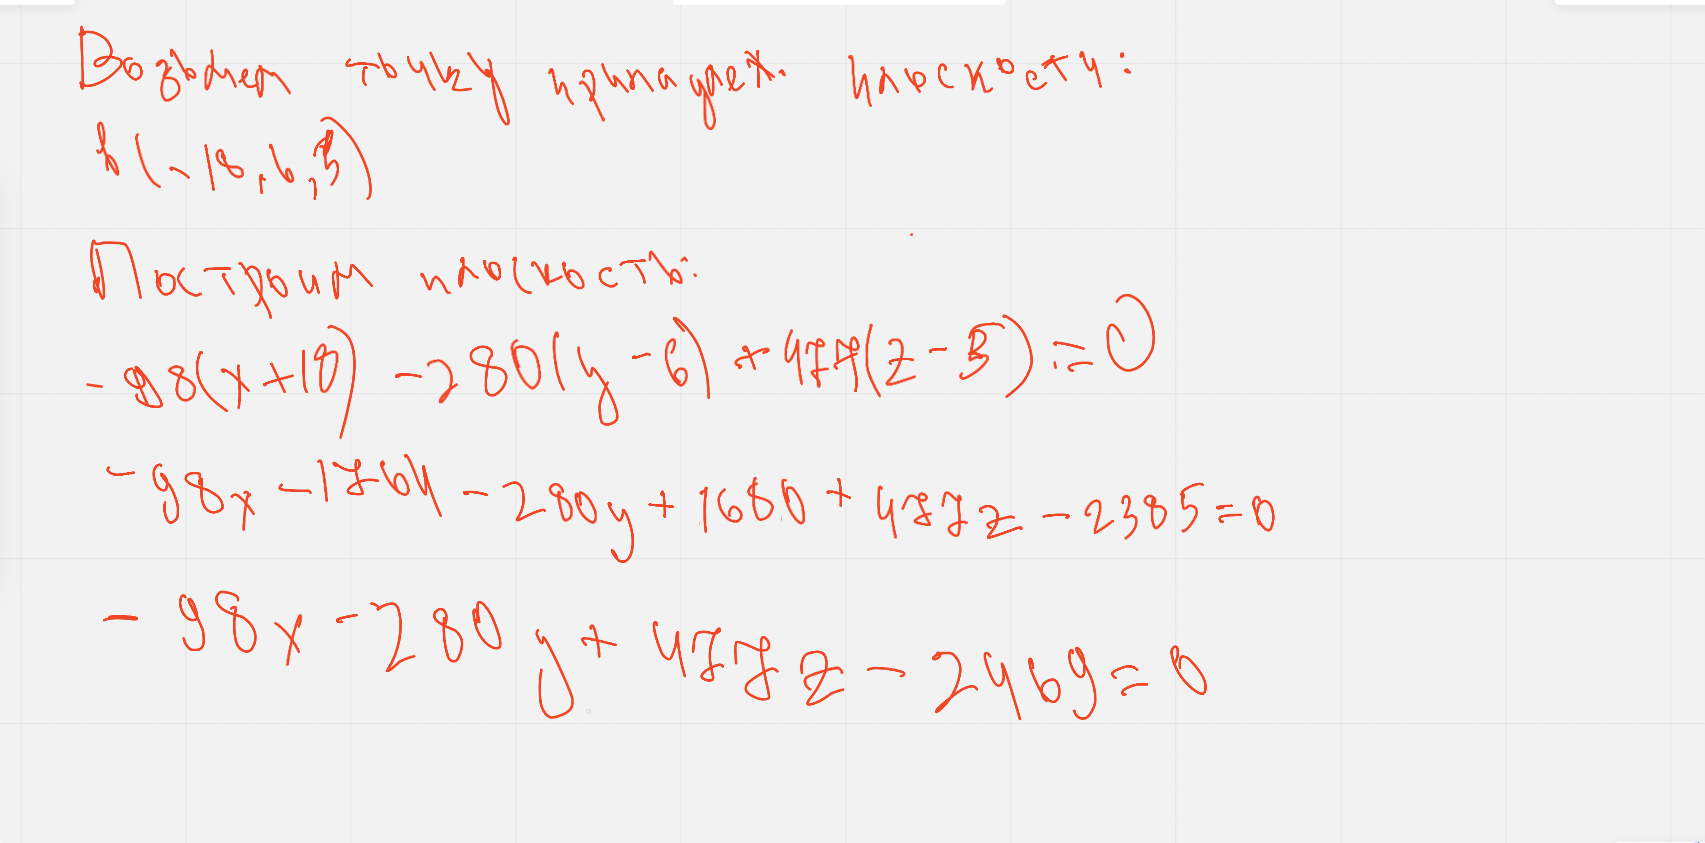 Возьмем точку принадлеж. плоскости:
(-18, 6, 5)
Построим плоскость:
-98(x+18) -280(y-6) +477(z-5)=0
-98x -1764 -280y +1680 +477z -2385=0
-98x -280y +477z -2469=0